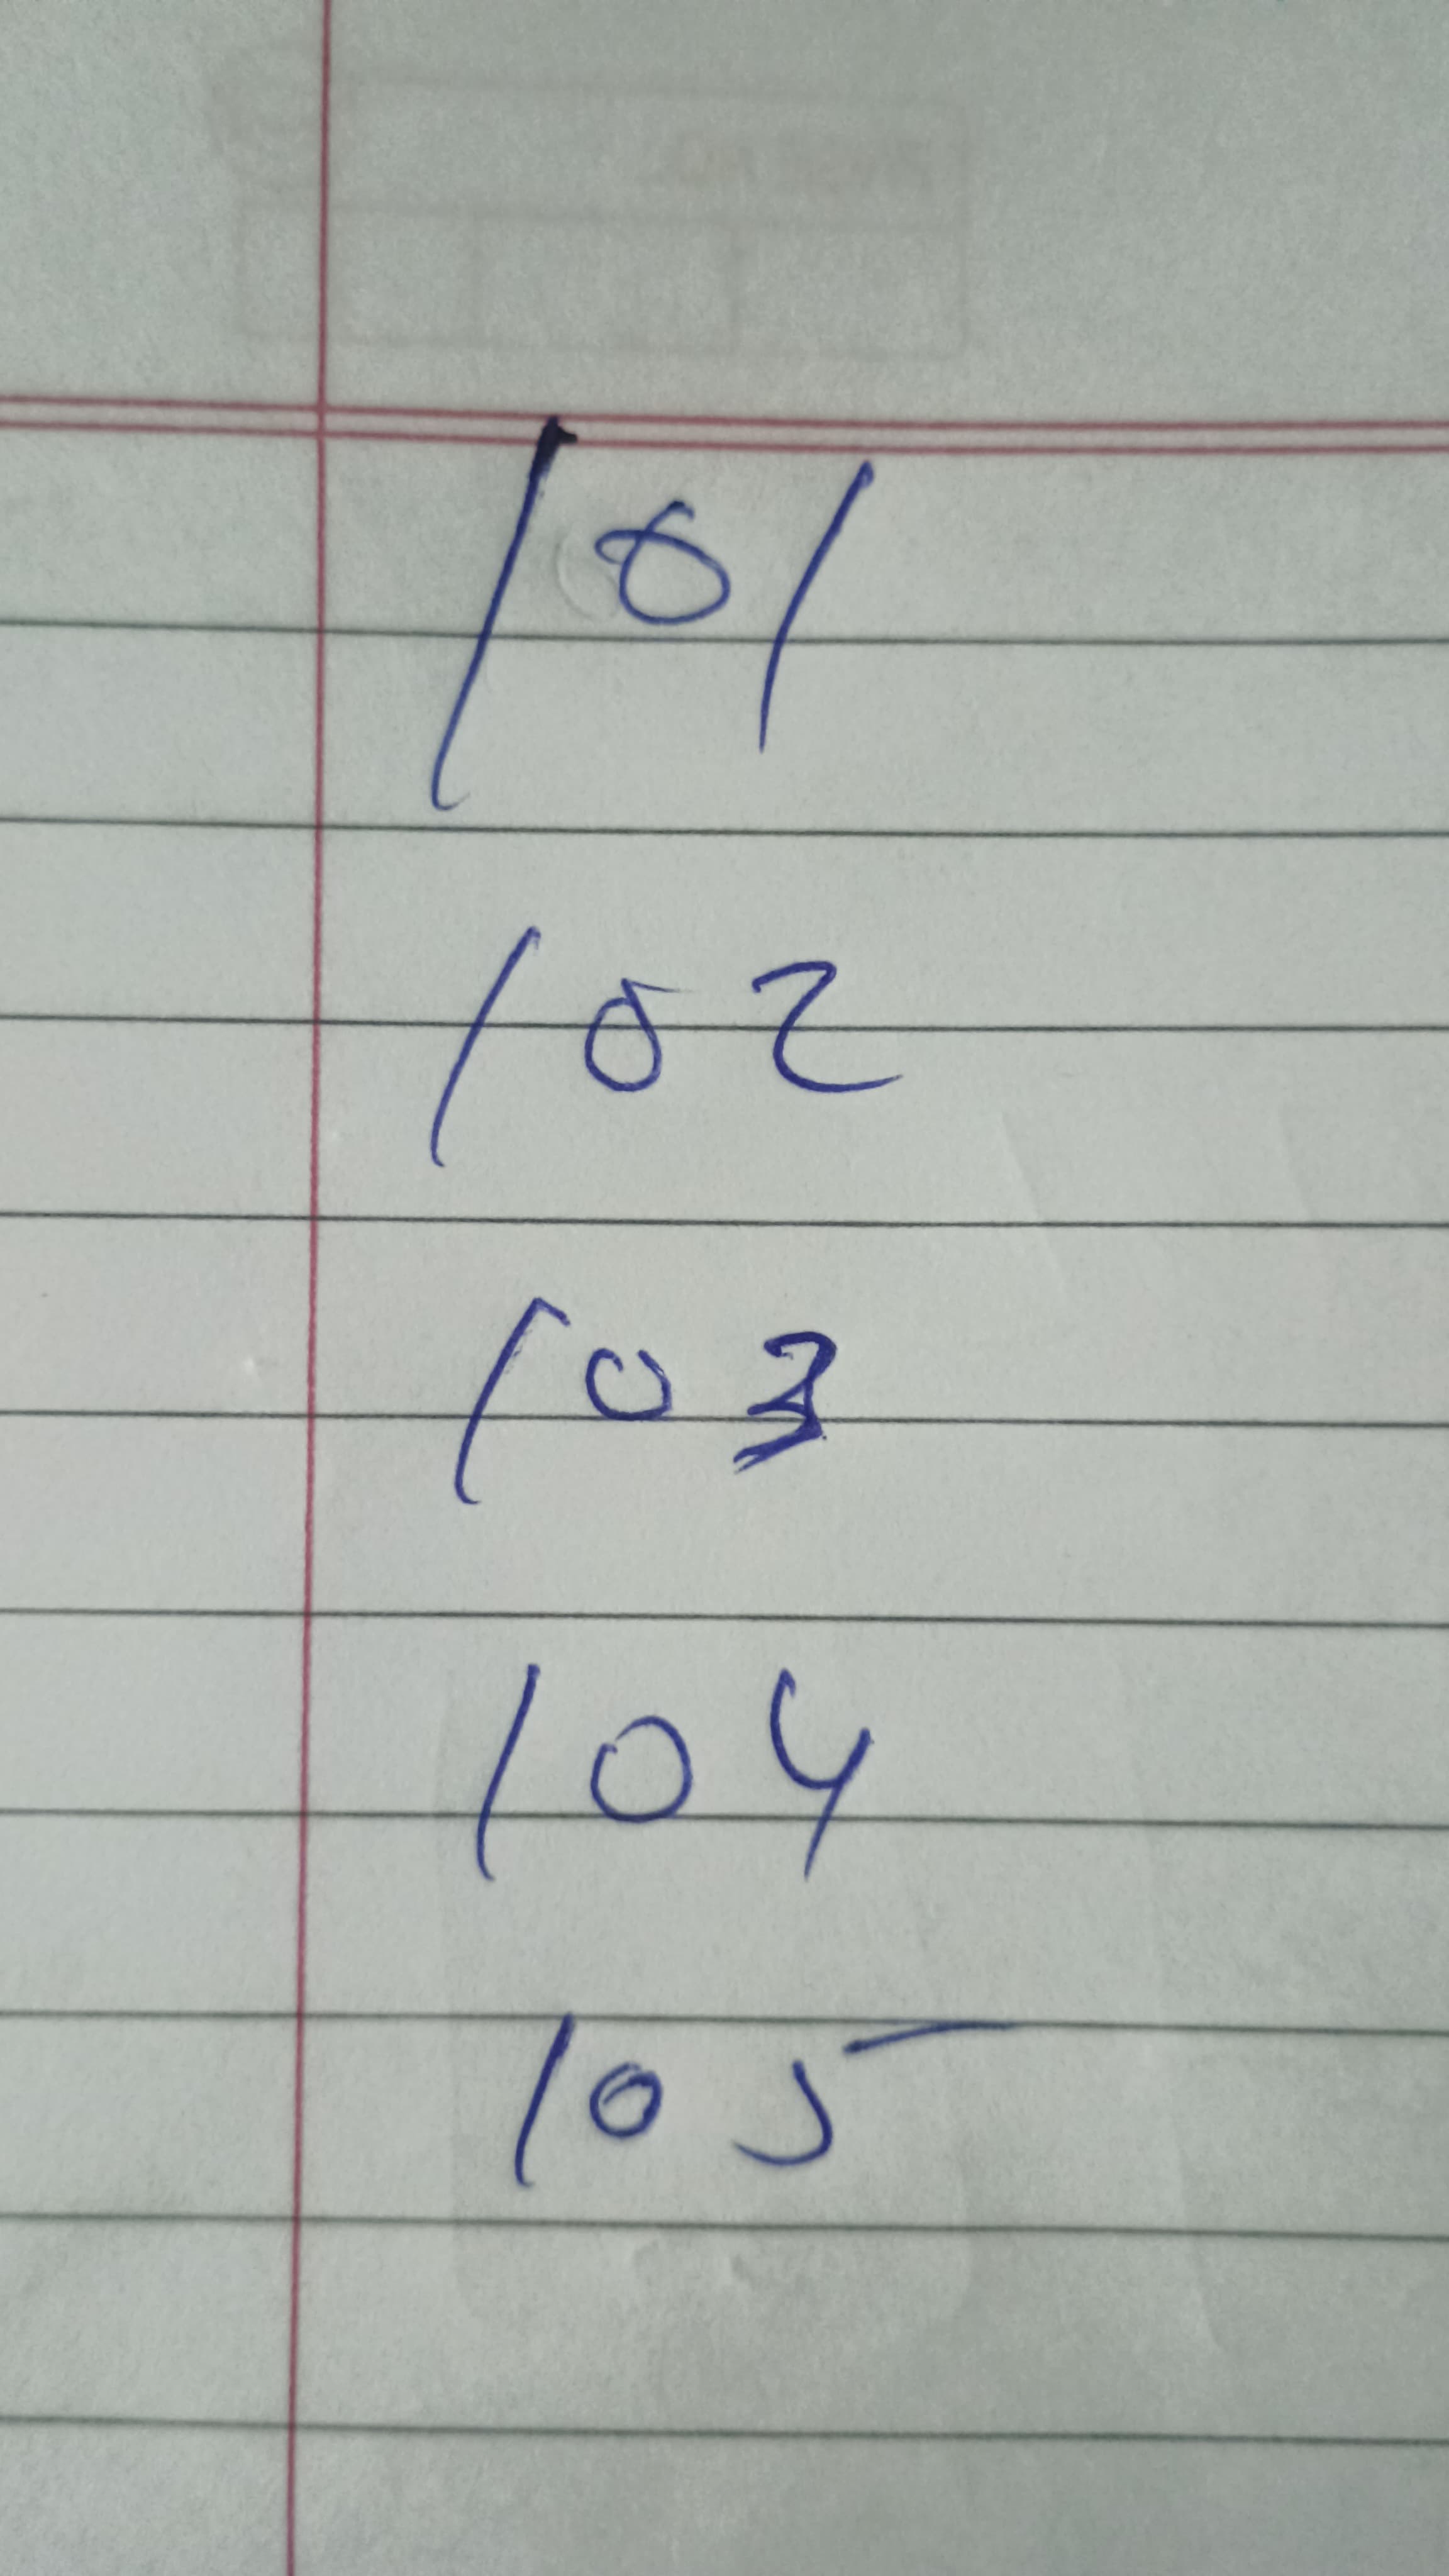 101
102
103
104
105